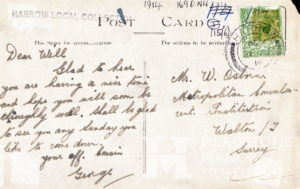 HARROW LOCAL COLLECTION
1914
POST CARD
115/6
The address to be written
Dear Will
Glad to hear
you are having a nice time
and hope you will soon be
thoroughly well. Shall be glad
to see you any Sunday you
like to come down.
your aff. Cousin
George
Mr. W. Osborn
Metropolitan Convales-
cent Institution
Walton /T
Surrey